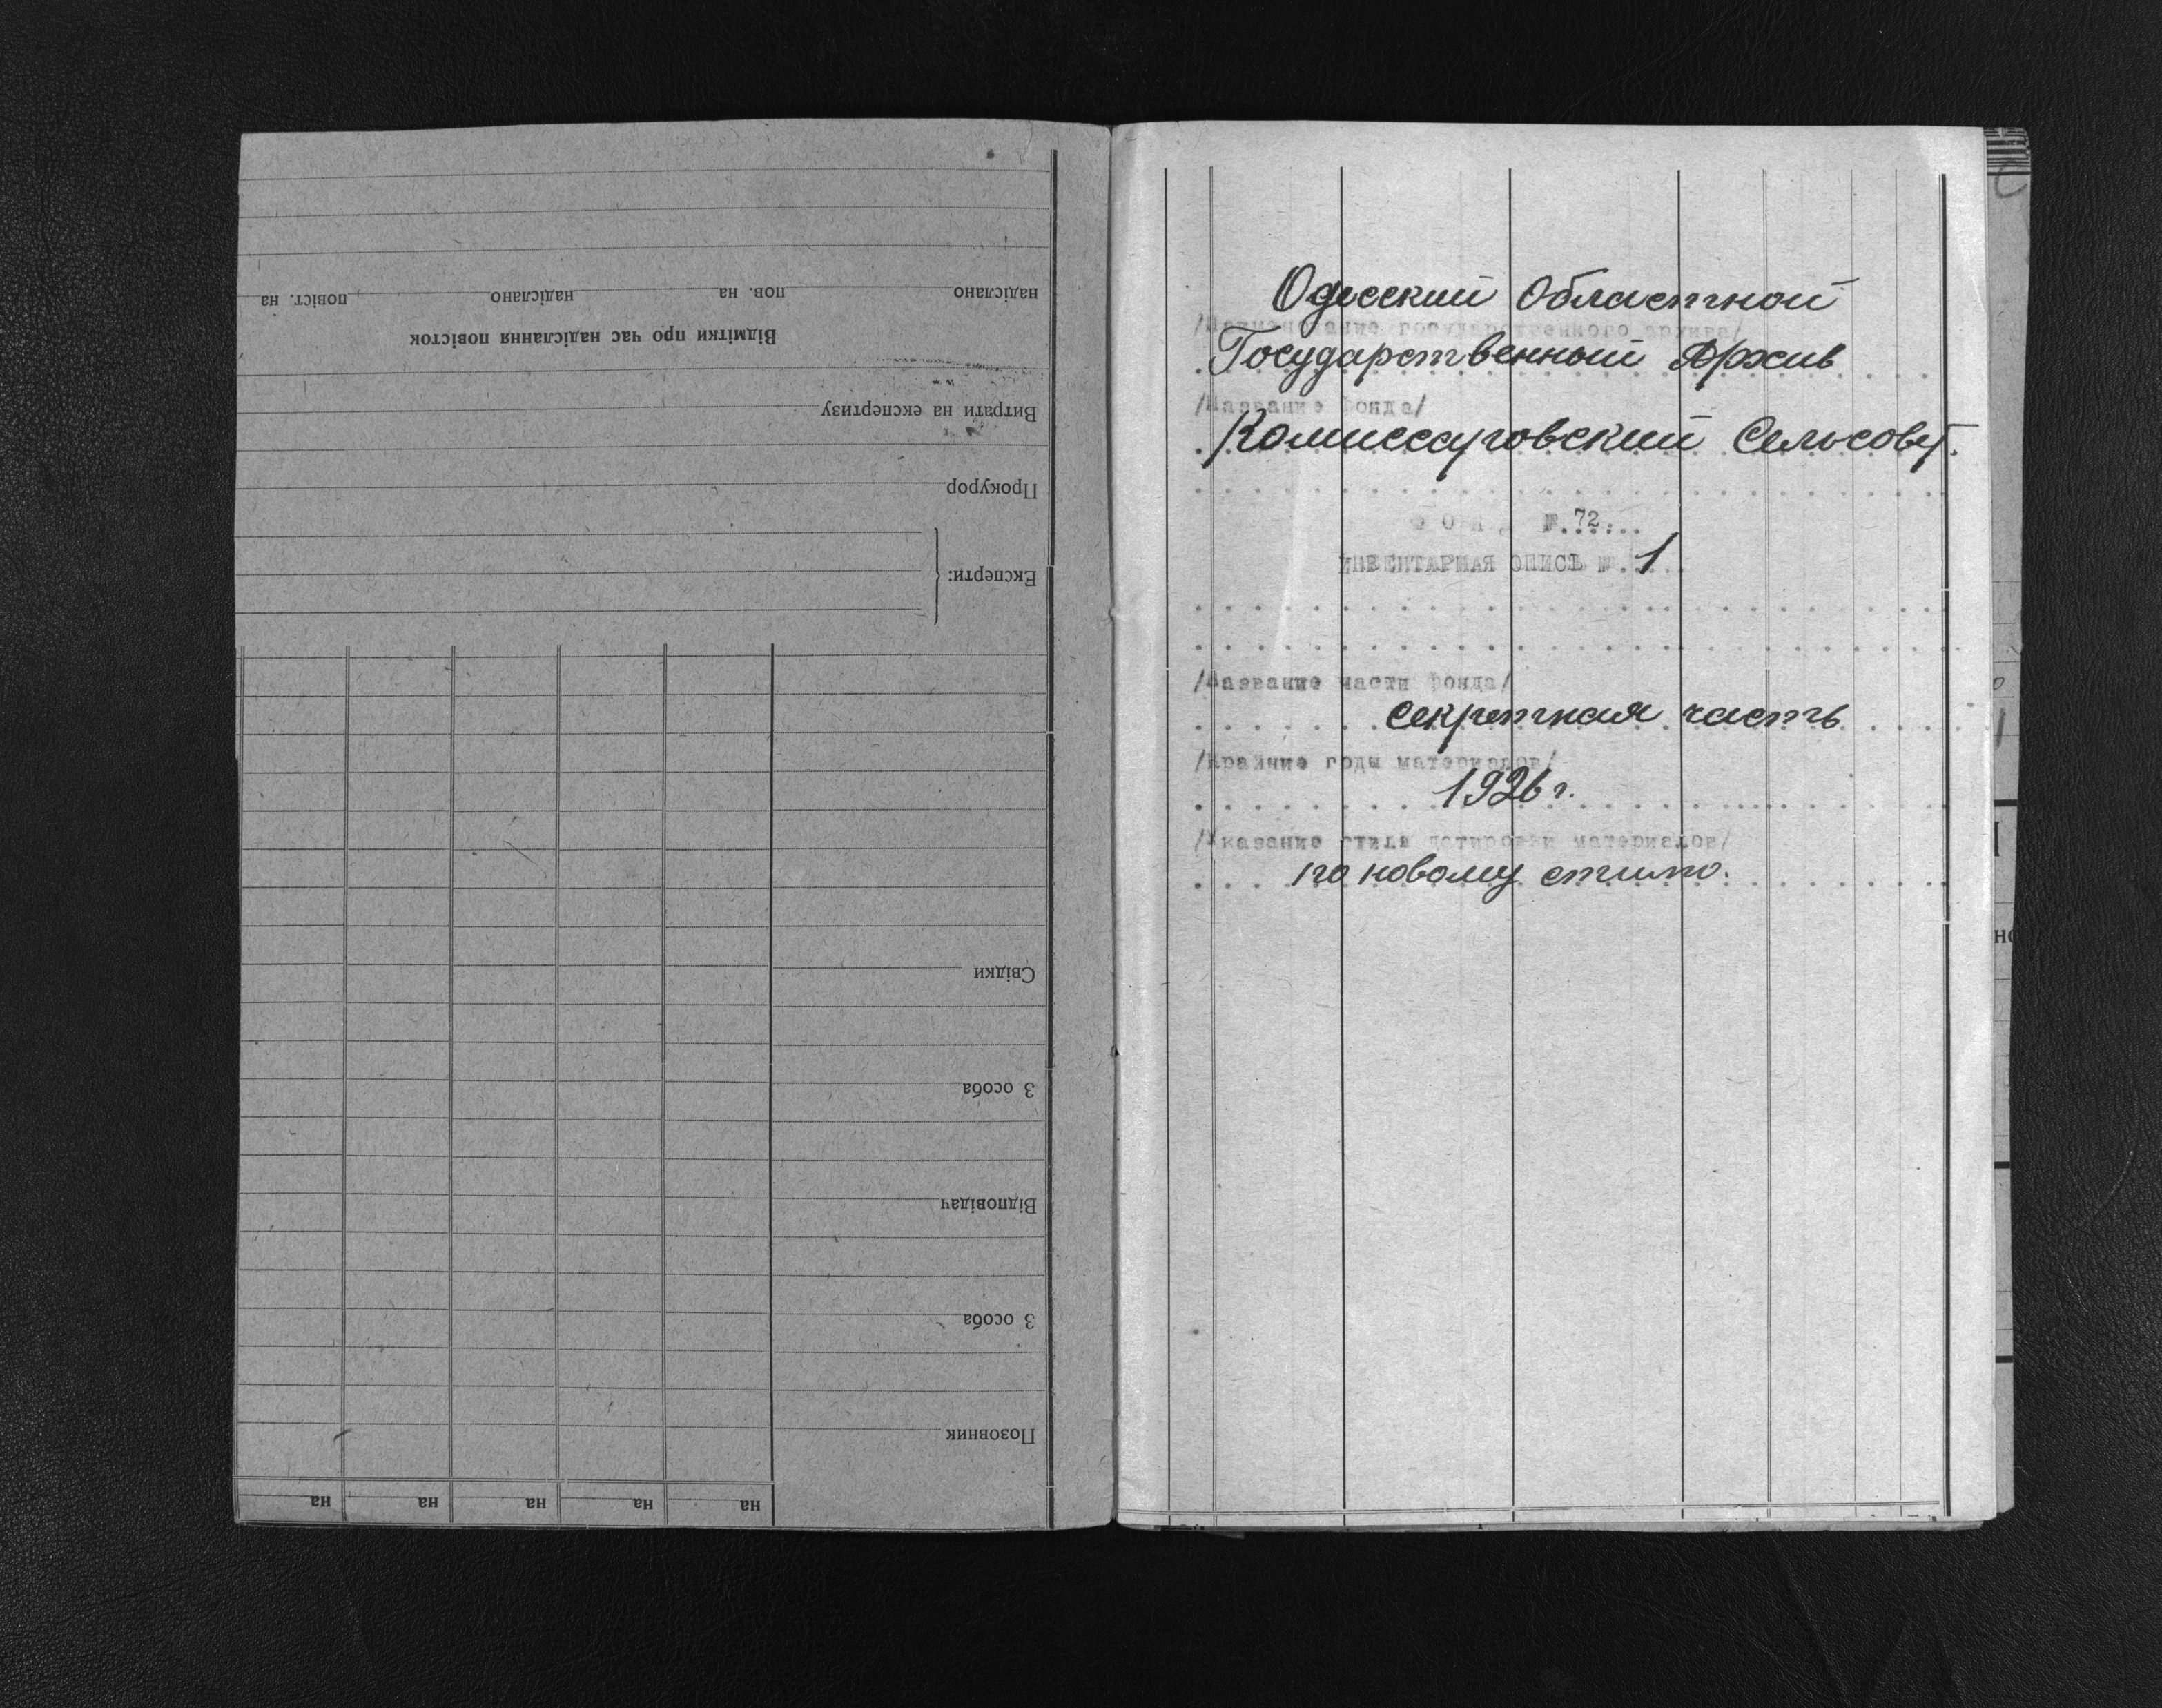 надіслано пов. на надіслано повіст. на
Відмітки про час надіслання повісток
Витрати на експертизу
Прокурор
Експерти:
Свідки
3 особа
Відповідач
3 особа
Позовник
на на на на на
Одесский Областной
/Наименование государственного архива/
Государственный Архив
/Название фонда/
Комиссаровский Сельсовет.
ФОНД №.72...
ИНВЕНТАРНАЯ ОПИСЬ № 1
/Название части фонда/
Секретная часть
/Крайние годы материалов/
1926 г.
/Указание стиля датировки материалов/
по новому стилю.